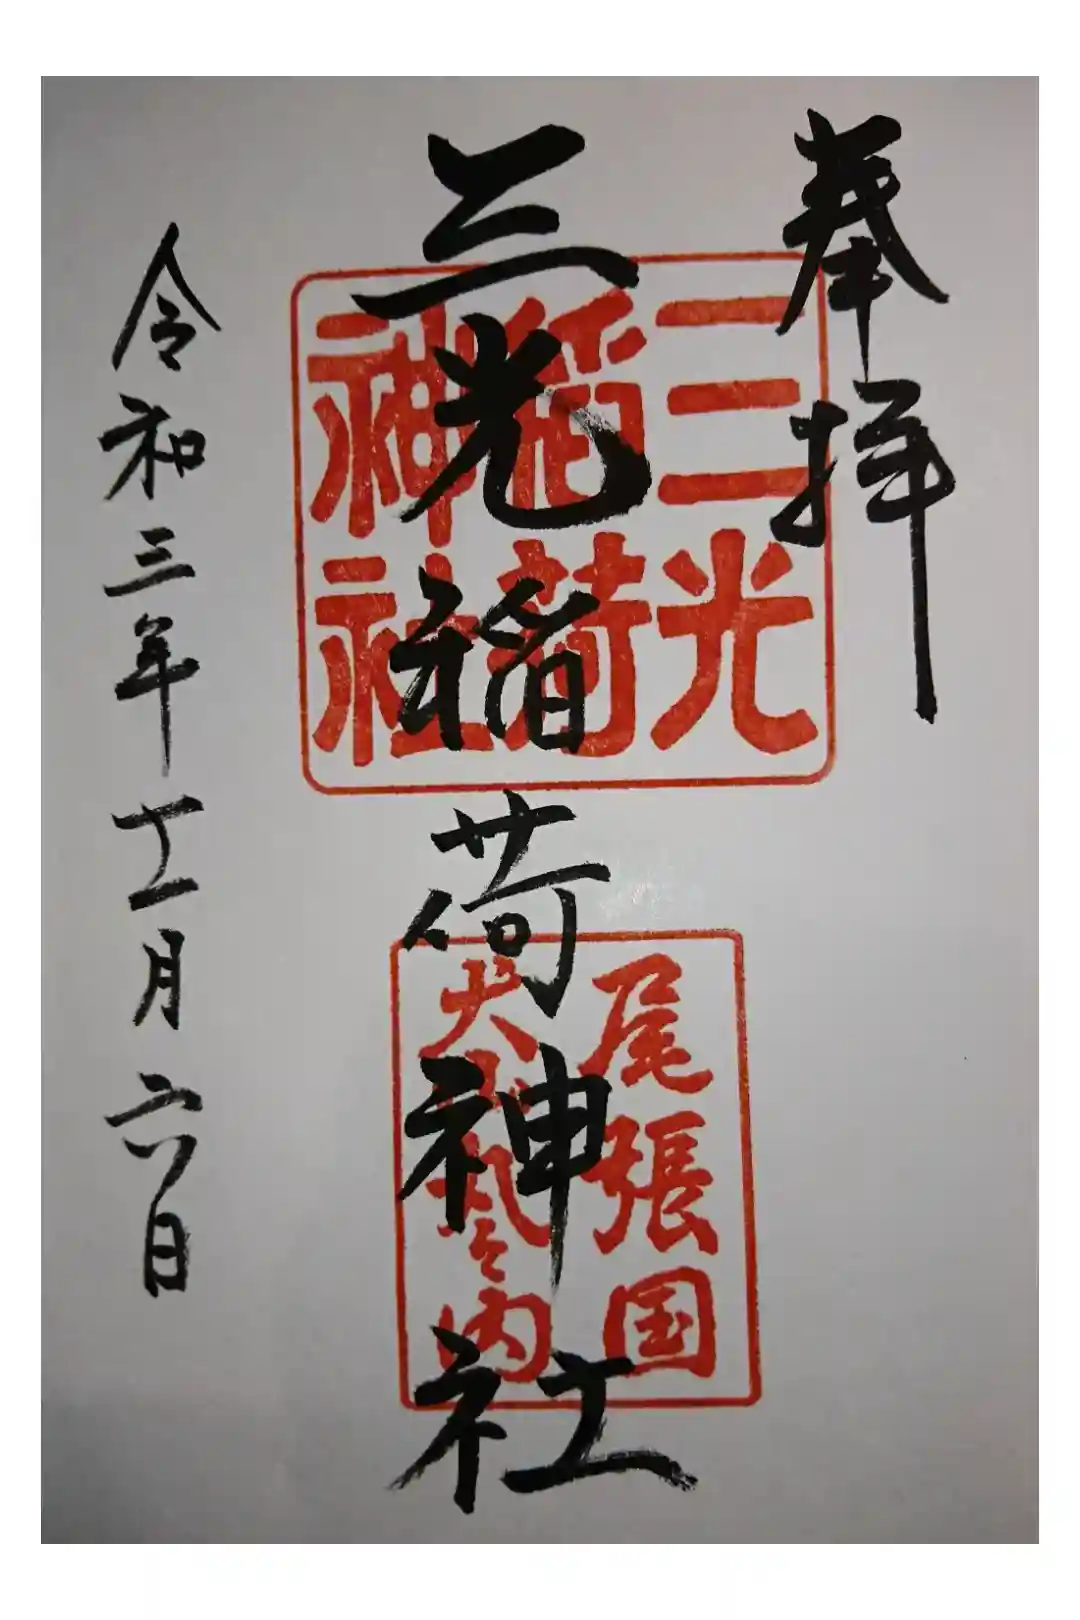 奉拝
三光稲荷神社
三光
稲荷
神社
尾張国
犬山城内
令和三年十一月六日